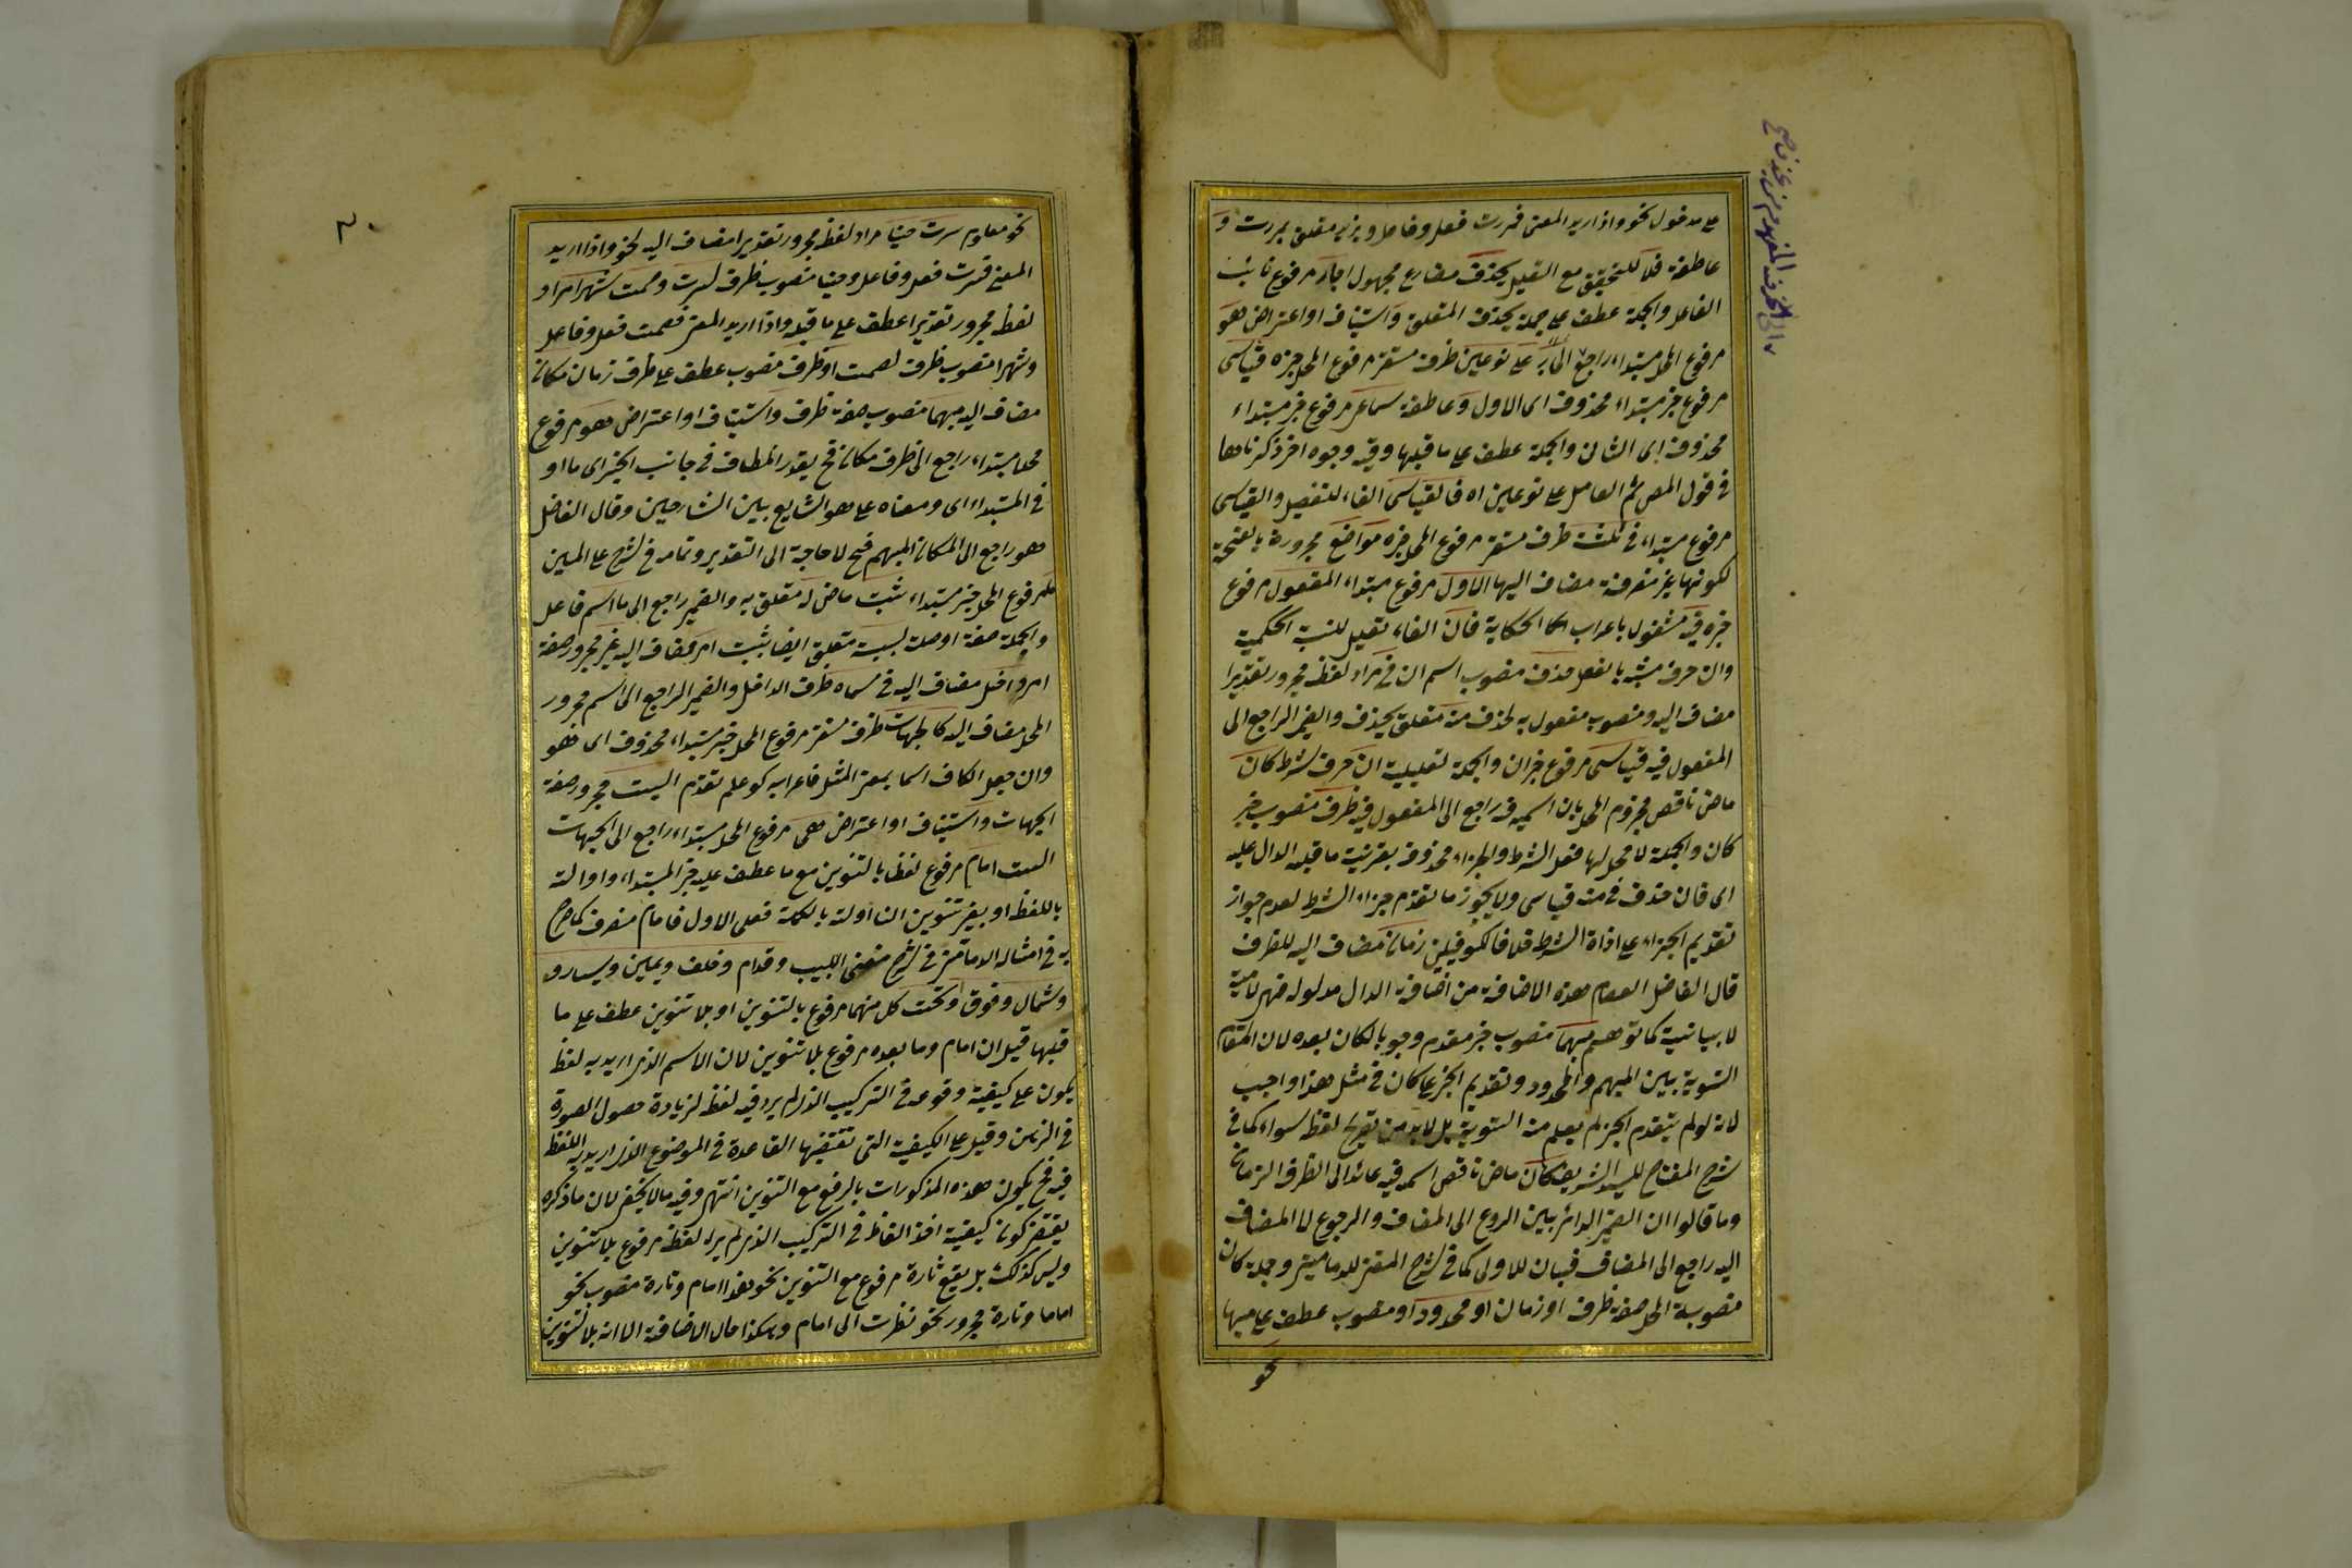 على مدخول نحو واذا اريد المعنى فمررت فعل وفاعل وبزيد متعلق بمررت و
عاطفة فلا للتحقيق مع التقليل يحذف مضارع مجهول الجار مرفوع نائب
الفاعل والجملة عطف على جملة يحذف المتعلق واستيناف او اعتراض هو
مرفوع المحل مبتداء راجع الى على نوعين ظرف مستقر مرفوع المحل خبره قياسى
مرفوع خبر مبتداء محذوف اى الاول وعاطفة سماعى مرفوع خبر مبتداء
محذوف اى الثانى والجملة عطف على ما قبلها وفيه وجوه اخر ذكرناها
فى قول المص ثم العامل على نوعين اه فالقياسى الفاء للتفصيل والقياسى
مرفوع مبتداء فى ثلثة ظرف مستقر مرفوع المحل خبره مواضع مجرورة بالفتحة
لكونها غير منصرفة مضاف اليها الاول مرفوع مبتداء المفعول مرفوع
خبره فيه مشغول باعراب الحكاية فان الفاء تعليل للنسبة الحكمية
وان حرف مشبه بالفعل حذف منصوب اسم ان فى مراد لفظه مجرور تقديرا
مضاف اليه ومنصوب مفعول به لحذف منه متعلق بحذف والضمير الراجع الى
المفعول فيه قياسى مرفوع خبر ان والجملة تعليلية ان حرف شرط كان
ماض ناقص مجزوم المحل بان اسمه فيه راجع الى المفعول فيه ظرف منصوب خبر
كان والجملة لا محل لها فعل الشرط والجزاء محذوف بقرينة ما قبله الدال عليه
اى فان حذف فى منه قياسى ولا يجوز ما تقدم جزاء الشرط لعدم جواز
تقديم الجزاء على اداة الشرط خلافا للكوفيين زمان مضاف اليه للظرف
قال الفاضل العصام هذه الاضافة من اضافة الدال مدلوله فهى لامية
لا بيانية كما توهم مبهما منصوب خبر مقدم وجوبا لكان بعده لان المقام
التسوية بين المبهم والمحدود وتقديم الخبر على كان فى مثل هذا واجب
لانه لو لم يتقدم الخبر لم يعلم منه التسوية بل لابد من تصريح لفظ سواء كما فى
شرح المفتاح للسيد الشريف كان ماض ناقص اسمه فيه عائد الى الظرف الزمان
وما قالوا ان الضمير الدائر بين الرجوع الى المضاف والرجوع لا المضاف
اليه راجع الى المضاف فبيان للاولى كما فى شرح المغنى للدمامينى وجملة كان
منصوبة المحل صفة ظرف او زمان او محدودا ومنصوب عطف على مبهما
نحو
نحو معلوم سرت حينا مراد لفظه مجرور تقديرا مضاف اليه لنحو واذا اريد
المعنى فسرت فعل وفاعل وحينا منصوب ظرف لسرت وصمت شهرا مراد
لفظه مجرور تقديرا عطف على ما قبله واذا اريد المعنى فصمت فعل وفاعل
وشهرا منصوب ظرف لصمت او ظرف منصوب عطف على ظرف زمان مكان
مضاف اليه مبهما منصوب صفة ظرف واستيناف او اعتراض هو مرفوع
محلا مبتداء راجع الى ظرف مكان فح يقدر المضاف فى جانب الخبر اى ما او
فى المبتداء اى ومعناه على هو الشايع بين الشارحين وقال الفاضل
هو راجع الى المكان المبهم فح لا حاجة الى التقدير وتمامه فى شرح على المبين
ما مرفوع المحل خبر مبتداء ثبت ماض له متعلق به والضمير راجع الى ما اسم فاعل
والجملة صفة او صلة بسبب متعلق ايضا بثبت امر مضاف اليه غير مجرور صفة
امر داخل مضاف اليه فى مسماه ظرف الداخل والضمير الراجع الى اسم مجرور
المحل مضاف اليه كالجهات ظرف مستقر مرفوع المحل خبر مبتداء محذوف اى هو
وان جعل الكاف اسما بمعنى المثل فاعرابه كو علم تقدم الست مجرور صفة
الجهات واستيناف او اعتراض هى مرفوع المحل مبتداء راجع الى الجهات
الست امام مرفوع لفظا بالتنوين مع ما عطف عليه خبر المبتداء واوالته
باللفظ او بغير تنوين ان اولته بالكلمة فعلى الاول فامام منصرف كما صرح
به فى امثاله الدمامينى فى شرح مغنى اللبيب وقدام وخلف ويمين ويسار و
وشمال وفوق وتحت كل منهما مرفوع بالتنوين او بلا تنوين عطف على ما
قبلها قيل ان امام وما بعده مرفوع بلا تنوين لان الاسم الذى اريد به لفظ
يكون على كيفية وقوعه فى التركيب الذى لم يرد فيه لفظه لزيادة حصول الصورة
فى الذهن وقيل على الكيفية التى تقتضيها القاعدة فى الموضوع الذى اريد به اللفظ
فيه فح يكون هذه المذكورات بالرفع مع التنوين انتهى وفيه ما لا يخفى لان ما ذكره
يقتضى كون كيفية اخذ الفاظ فى التركيب الذى لم يراد لفظه مرفوع بلا تنوين
وليس كذلك بل يقع تارة مرفوع مع التنوين نحو هذا امام وتارة منصوب نحو
اماما وتارة مجرور نحو نظرت الى امام وهكذا حال الاضافة الا انه بلا تنوين